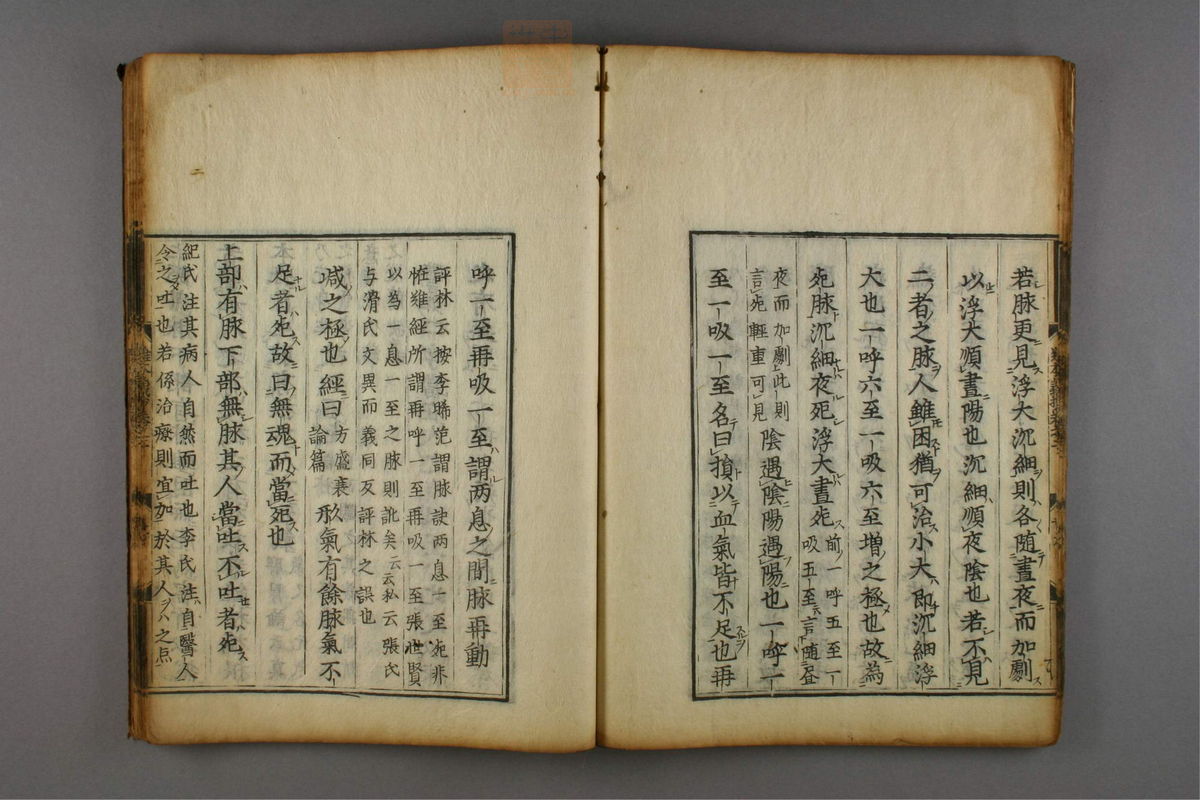 若脉更見浮大沉細則各随晝夜而加劇
以浮大順晝陽也沉細順夜陰也若不見
二者之脉人雖困猶可治小大即沉細浮
大也一呼六至一吸六至増之極也故為
死脉沉細夜死浮大晝死前一呼五至一
吸五至言随昼
夜而加劇此則
言死輕重可見
陰遇陰陽遇陽也一呼一
至一吸一至名曰損以血氣皆不足也再
呼一至再吸一至謂两息之間脉再動
評林云按李晞范謂脉訣两息一至死非
惟難經所謂再呼一至再吸一至張世賢
以為一息一至之脉則訛矣云云私云張氏
与滑氏文異而義同反評林之誤也
减之極也經曰方盛衰
論篇
形氣有餘脉氣不
足者死故曰無魂而當死也
上部有脉下部無脉其人當吐不吐者死
紀氏注其病人自然而吐也李氏注自醫人
令之吐也若係治療則宜加於其人之点